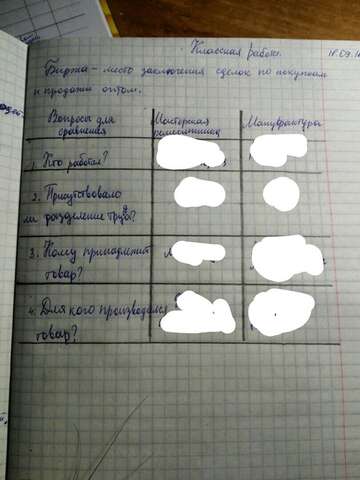 Классная работа.
Биржа - место заключения сделок по покупкам
и продажи оптом.
Вопросы для сравнения
Мастерская ремесленника
Мануфактура
1. Кто работал?
2. Присутствовало
ли разделение труда?
3. Кому принадлежит
товар?
4. Для кого производился
товар?